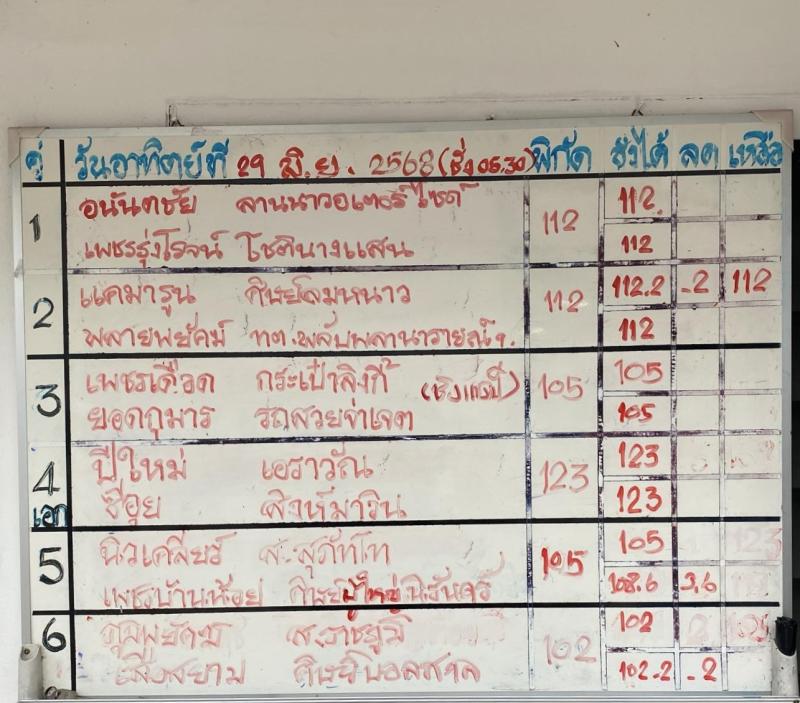 คู่ วันอาทิตย์ที่ 29 มิ.ย. 2568 (ชั่ง 05.30) พิกัด ชั่งได้ ลด เหลือ
1 อนันตชัย ลานนาวอเตอร์ไซด์ 112 112
เพชรรุ่งโรจน์ โชตินางแสน 112
2 แคมารูน ศิษย์ลมหนาว 112 112.2 -2 112
พลายพยัคฆ์ ทต.พลับพลานารายณ์ฯ. 112
3 เพชรเดือด กระเป๋าลิงกี้ (ชิงแชมป์) 105 105
ยอดกุมาร รถสวยจ่าเจต 105
4 ปีใหม่ เอราวัณ 123 123
เอก ซีอุย สิงห์มาวิน 123
5 นิวเคลียร์ ส.สุภัทโท 105 105
เพชรบ้านห้อย ศิษย์ผู้ใหญ่นิรันดร์ 108.6 3.6
6 ส.ราชภูมิ 102 102
เสือสยาม ศิษย์บอลสกล 102.2 -2